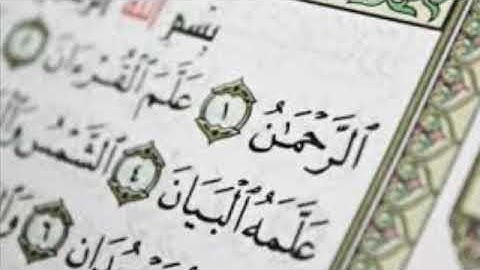 بِسْمِ ٱللَّهِ
ٱلرَّحْمَـٰنُ ١ عَلَّمَ ٱلْقُرْءَانَ ٢
عَلَّمَهُ ٱلْبَيَانَ ٤ ٱلشَّمْسُ وَٱلْ
٦